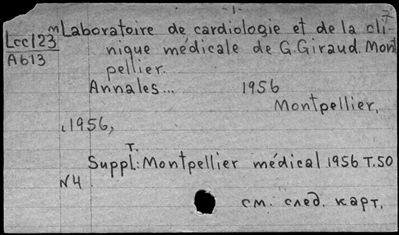 -1-
7
Lcc123m
A613
Laboratoire de cardiologie et de la cli-
nique médicale de G. Giraud. Mont
pellier.
Annales... 1956
Montpellier,
1956,
T.
Suppl.: Montpellier médical 1956 T.50
N4
см. след. карт.